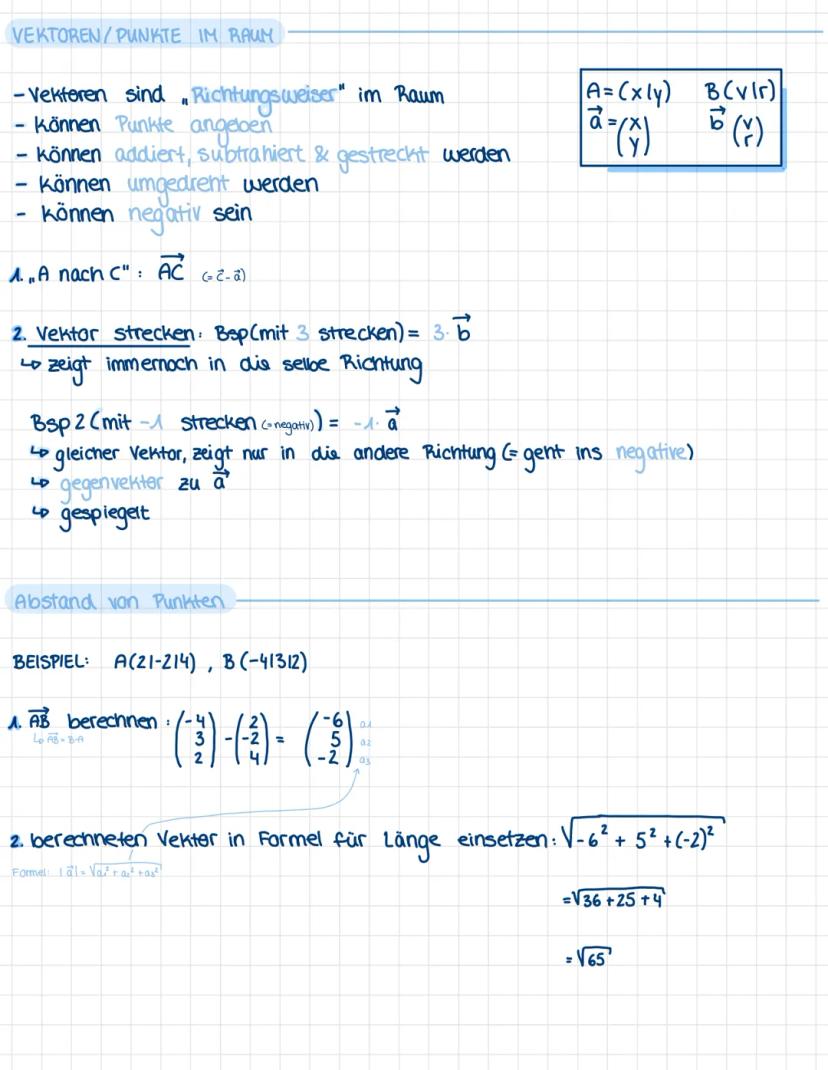 VEKTOREN/PUNKTE IM RAUM
- Vektoren sind „Richtungsweiser" im Raum
- können Punkte angeben
- können addiert, subtrahiert & gestreckt werden
- können umgedreht werden
- können negativ sein
A=(x|y) B(v|r)
a⃗ = (x y) b⃗ (v r)
1. „A nach C" : AC⃗ (= c⃗ - a⃗)
2. Vektor strecken: Bsp(mit 3 strecken) = 3· b⃗
↳ zeigt immernoch in die selbe Richtung
Bsp 2 (mit -1 strecken (=negativ)) = -1· a⃗
↳ gleicher Vektor, zeigt nur in die andere Richtung (= geht ins negative)
↳ gegenvektor zu a⃗
↳ gespiegelt
Abstand von Punkten
BEISPIEL: A(2|-2|4) , B(-4|3|2)
1. AB⃗ berechnen : (-4 3 2) - (2 -2 4) = (-6 5 -2) a1 a2 a3
↳ AB⃗ = B-A
2. berechneten Vektor in Formel für Länge einsetzen: √-6² + 5² + (-2)²
Formel: |a⃗| = √a₁² + a₂² + a₃²
= √36 + 25 + 4
= √65